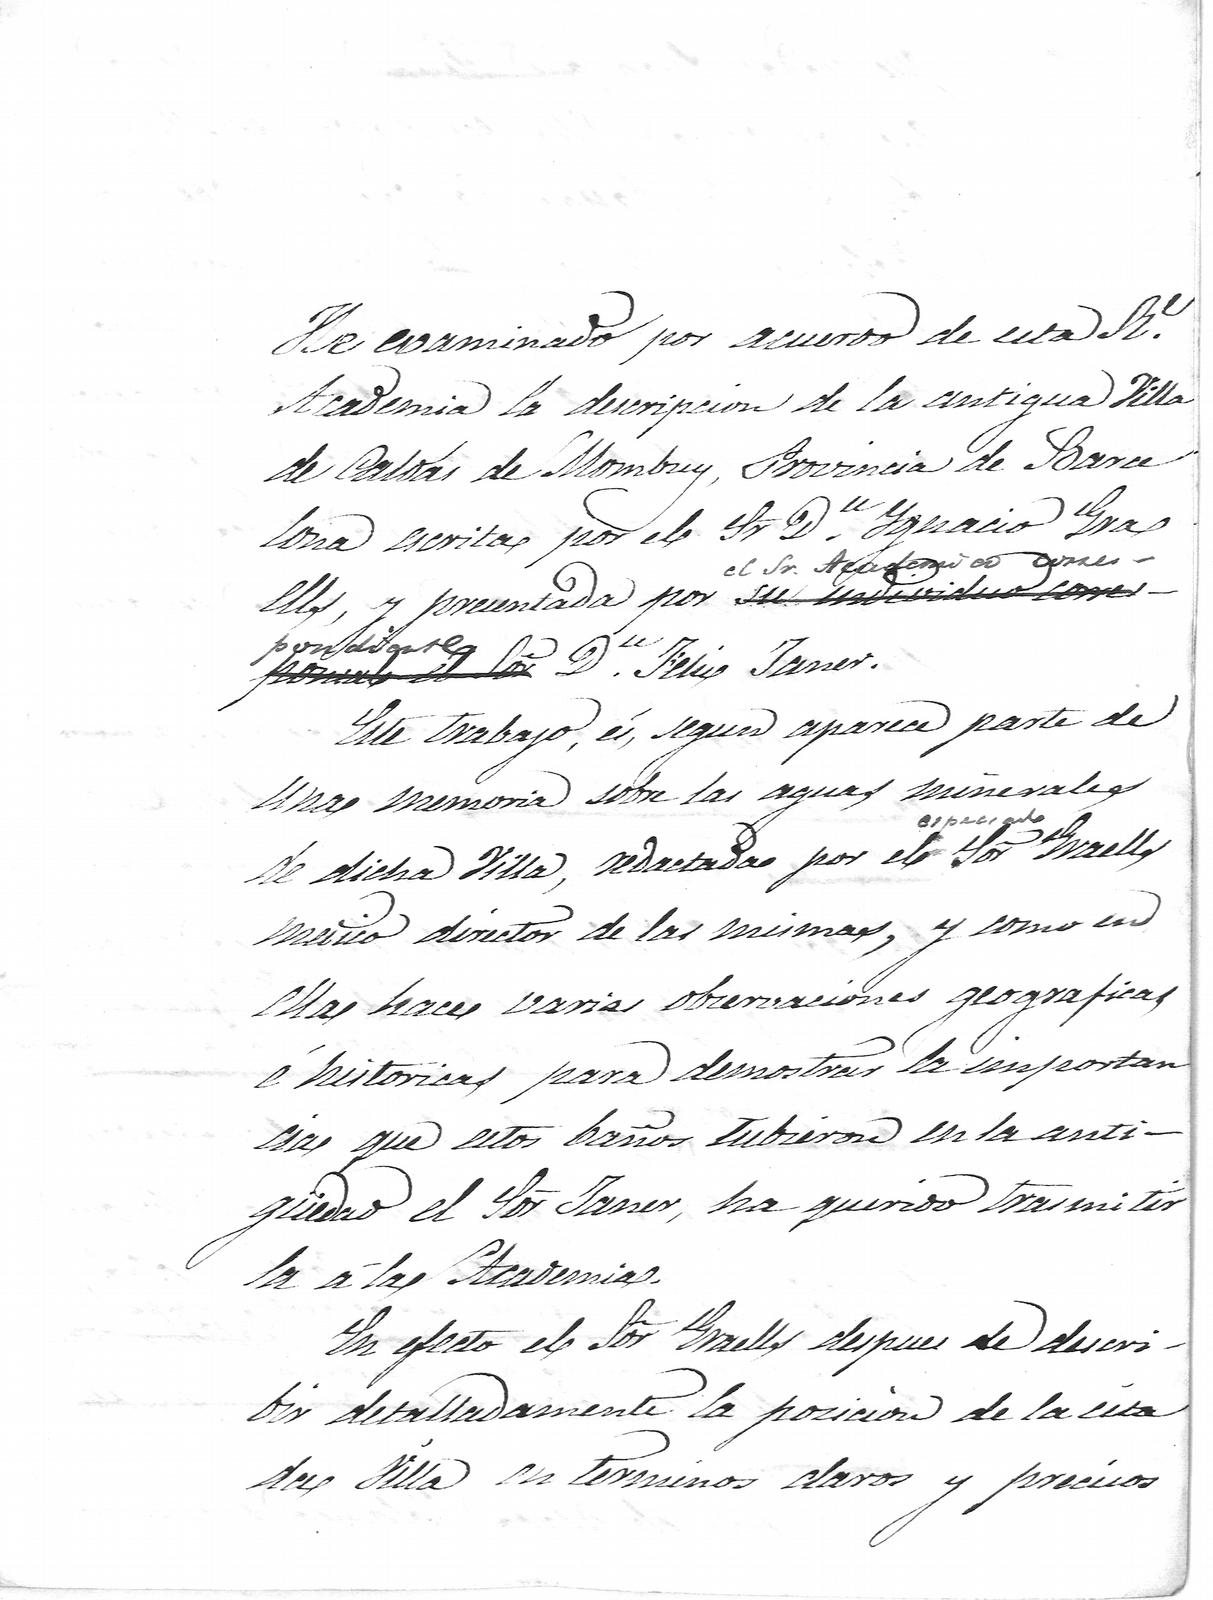 He examinado por acuerdo de esta Rl.
Academia la descripcion de la antigua Villa
de Caldas de Mombuy, Provincia de Barce
lona escrita por el Sr Dn. Ygnacio Gra
el Sr. Academico corres-
ells, y presentada por su individuo corres-
pondiente
ponsal el Sor Dn. Felix Janer.
Este trabajo, és, segun aparece parte de
una memoria sobre las aguas minerales
de dicha Villa, redactada por el Sor Graells
medico director de las mismas, y como en
ella hace varias observaciones geograficas
é historicas para demostrar la importan
cia que estos baños tubieron en la anti-
güedad el Sor Janer, ha querido trasmitir
la á la Academia.
En efecto el Sor Graells despues de descri-
bir detalladamente la posicion de la cita
da Villa en terminos claros y precisos